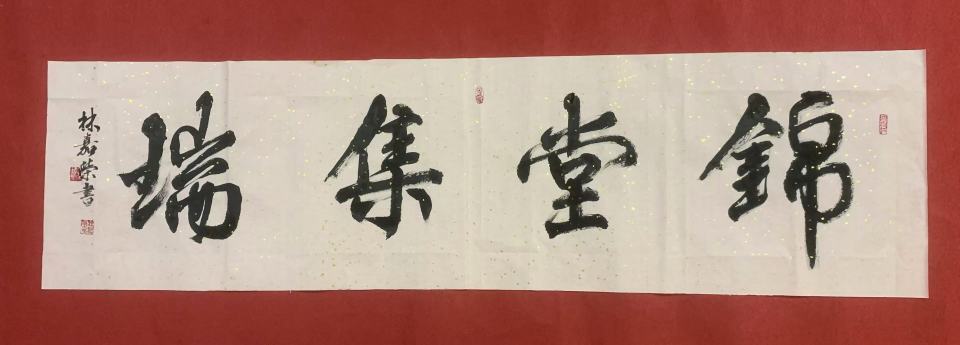 錦堂集瑞
林嘉榮書